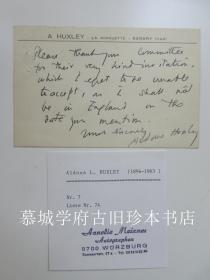 A HUXLEY - LA GORGUETTE - SANARY (VAR)
Please thank your Committee
for their very kind invitation,
which I regret to be unable
to accept, as I shall not
be in England on the
date you mention.
Yours sincerely
Aldous Huxley
Aldous L. HUXLEY (1894-1963)
Nr. 7
Liste Nr. 74
Annelie Meixner
Autographen
8700 WÜRZBURG
慕城学府古旧珍本书店